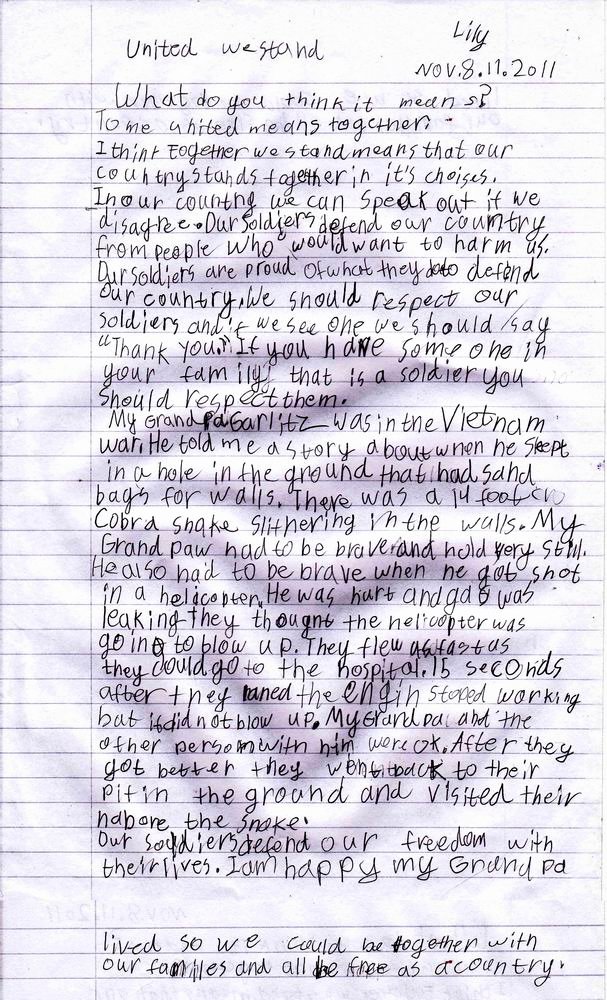 Lily
United we stand
Nov.8.11.2011
What do you think it means?
To me united means together.
I think Together we stand means that our
country stands together in it's choises.
In our country we can speak out if we
disagree. Our Soldiers defend our country
from people who would want to harm us.
Our soldiers are proud of what they do to defend
our country. We should respect our
soldiers and if we see one we should say
"Thank you." If you have some one in
your family that is a soldier you
should respect them.
My Grandpa Garlitz was in the Vietnam
war. He told me a story about when he slept
in a hole in the ground that had sand
bags for walls. There was a 14 foot
Cobra snake slithering in the walls. My
Grand paw had to be brave and hold very still.
He also had to be brave when he got shot
in a helicopter. He was hurt and gas was
leaking they thought the helicopter was
going to blow up. They flew as fast as
they could go to the hospital. 15 seconds
after they laned the engin stoped working
but it did not blow up. My Grand pa and the
other person with him were ok. After they
got better they went back to their
pit in the ground and visited their
nabore the snake.
Our soldiers defend our freedom with
their lives. I am happy my Grand pa
lived so we could be together with
our familes and all be free as a country.